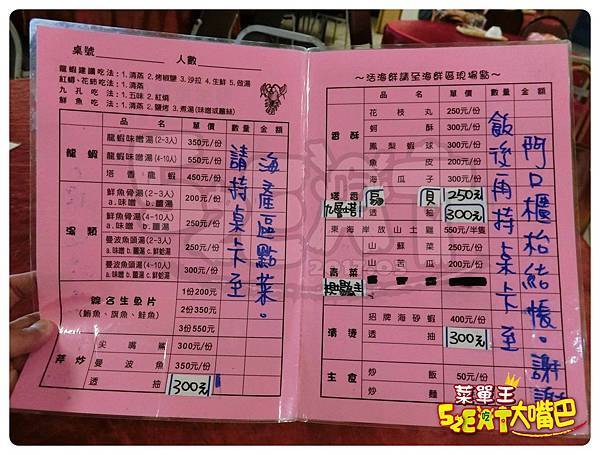 桌號 人數
龍蝦建議吃法：1.清蒸 2.烤椒鹽 3.沙拉 4.生鮮 5.做湯
紅蟳、花蚵吃法：1.清蒸
九孔吃法：1.五味 2.紅燒
鮮魚吃法：1.清蒸 2.鹽烤 3.煮湯(味噌或薑絲)
品名 單價 數量 金額
龍蝦
龍蝦味噌湯(2-3人) 350元/份
龍蝦味噌湯(4-10人) 550元/份
塔香龍蝦 450元/份
湯類
鮮魚骨湯(2-3人) a.味噌 b.薑湯 200元/份
鮮魚骨湯(4-10人) a.味噌 b.薑湯 250元/份
曼波魚頭湯(2-3人) a.味噌 b.薑湯 c.鮮蛤湯 250元/份
曼波魚頭湯(4-10人) a.味噌 b.薑湯 c.鮮蛤湯 300元/份
綜合生魚片
(鮪魚、旗魚、鮭魚)
1份200元
2份350元
3份550元
芹炒
尖嘴鯊 300元/份
曼波魚 350元/份
透抽 300元
請持桌卡至
海產區點菜。
～活海鮮請至海鮮區現場點～
品名 單價 數量 金額
香酥
花枝丸 250元/份
蚵酥 300元/份
鳳梨蝦球 300元/份
魚皮 200元/份
海瓜子 300元/份
塔香
九層塔
貝 250元
透抽 300元
東海岸放山土雞 550元/半隻
青菜
山蘇菜 250元/份
山苦瓜 200元/份
清燙
招牌海砂蝦 400元/份
透抽 300元
主食
炒飯 50元/份
炒麵
飯後再持桌卡至
門口櫃枱結帳。謝謝
菜單王
SZEAT吃大嘴巴